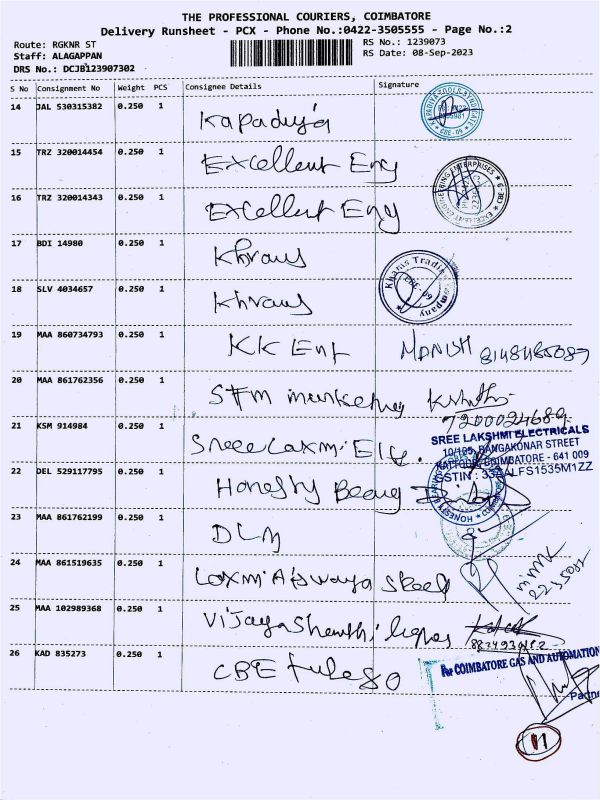 THE PROFESSIONAL COURIERS, COIMBATORE
Delivery Runsheet - PCX - Phone No.:0422-3505555 - Page No.:2
Route: RGKNR ST
Staff: ALAGAPPAN
DRS No.: DCJB123907302
RS No.: 1239073
RS Date: 08-Sep-2023
S No Consignment No Weight PCS Consignee Details Signature
14 JAL 530315382 0.250 1 Kapadiya
15 TRZ 320014454 0.250 1 Excellent Eng
16 TRZ 320014343 0.250 1 Excellent Eng
EXCELLENT ENGINEERING ENTERPRISES
17 BDI 14980 0.250 1 Khraws
18 SLV 4034657 0.250 1 Khraws
Khams Trading Company
CBE-09
19 MAA 860734793 0.250 1 KK Ent MANISH
20 MAA 861762356 0.250 1
7200024689
21 KSM 914984 0.250 1 Sree Laxmi Ele.
SREE LAKSHMI ELECTRICALS
10/105, RANGAKONAR STREET
KATTOOR, COIMBATORE - 641 009
22 DEL 529117795 0.250 1 Honesty Bearg
23 MAA 861762199 0.250 1 DLM
24 MAA 861519635 0.250 1 Laxmi Steel
25 MAA 102989368 0.250 1 Vijaya
26 KAD 835273 0.250 1 CBE
For COIMBATORE GAS AND AUTOMATION
Partner
11